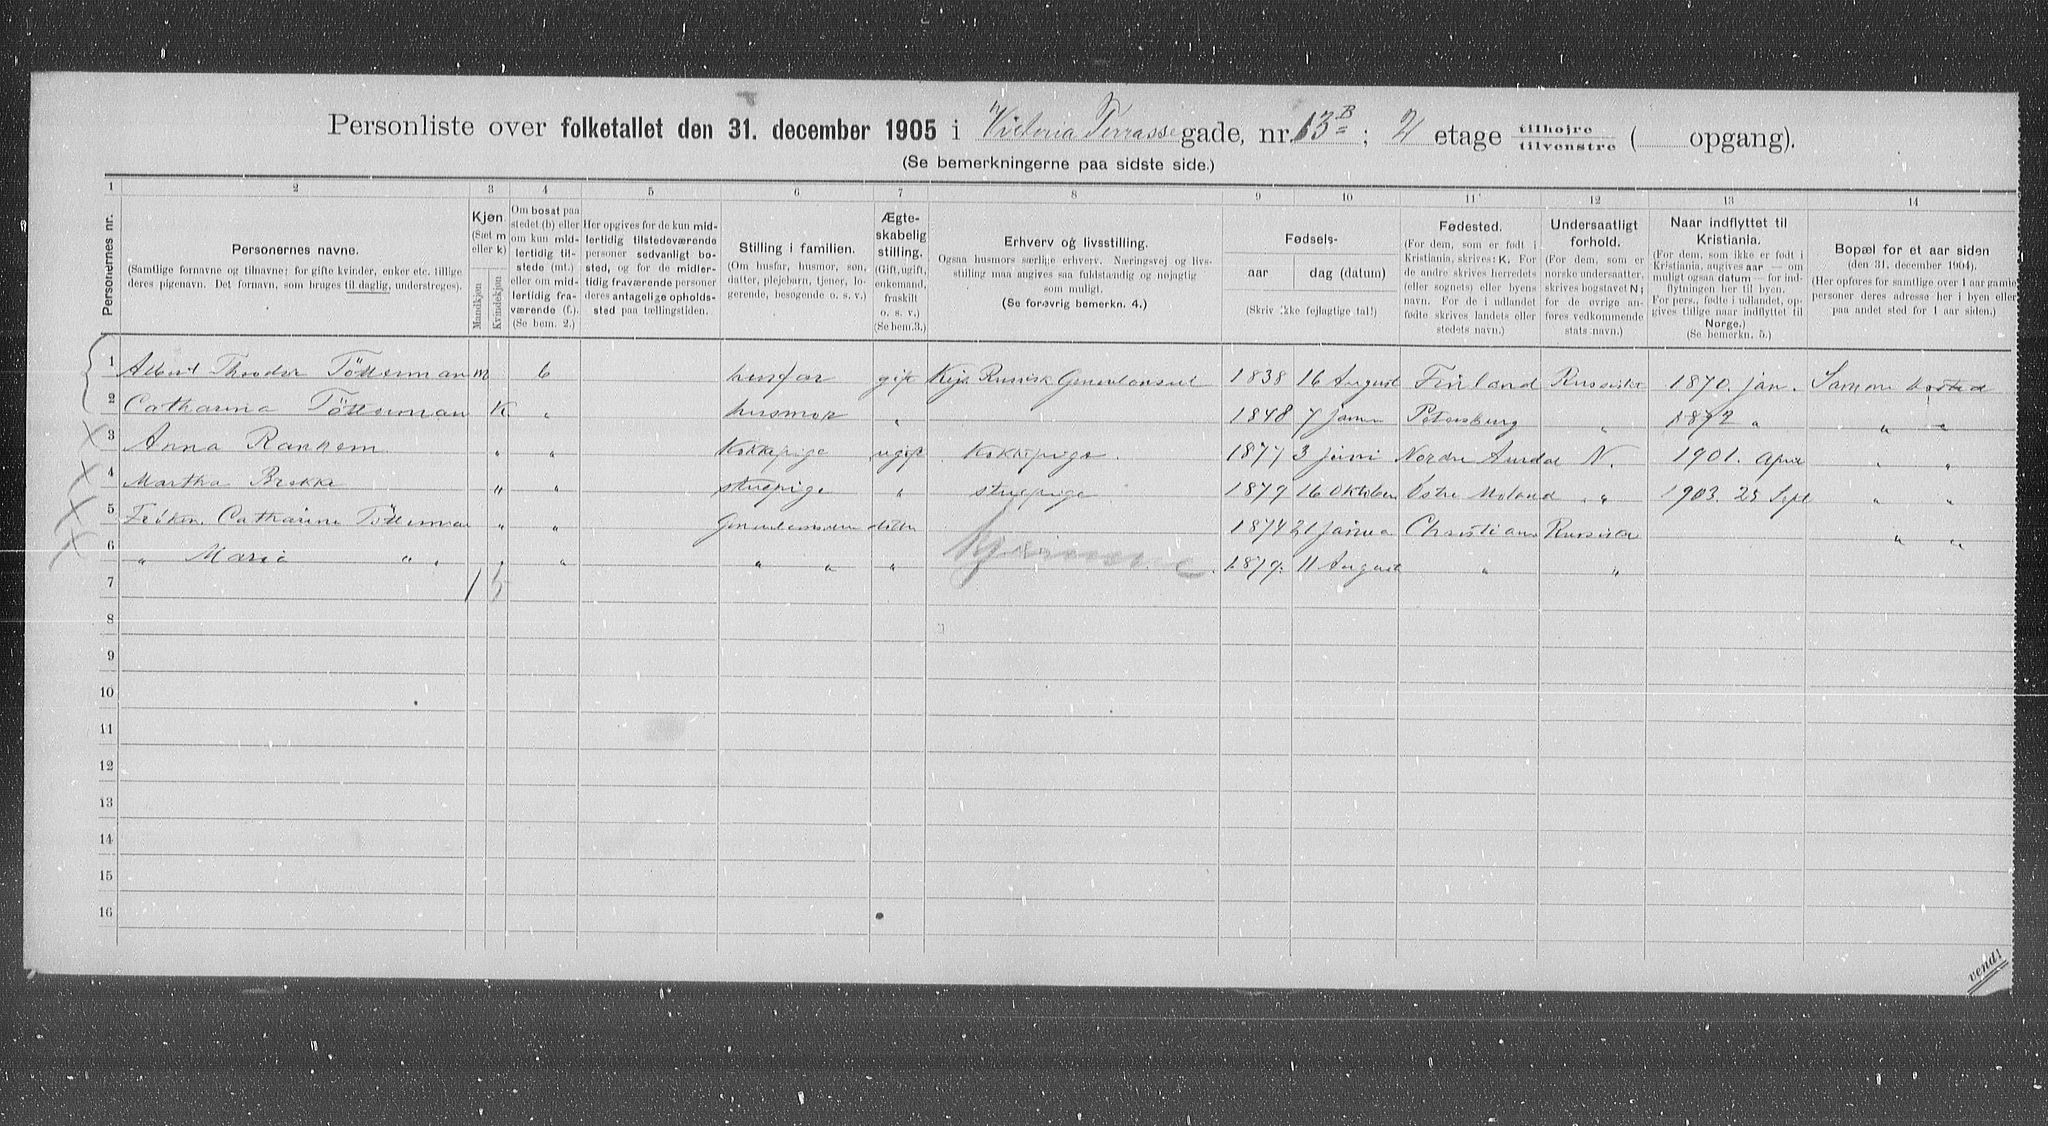 Personliste over folketallet den 31. december 1905 i Victoria Terrasse gade, nr. 13 B; 2 etage tilhøjre tilvenstre ( opgang).
(Se bemerkningerne paa sidste side.)
1 2 3 4 5 6 7 8 9 10 11 12 13 14
Personernes nr.
Personernes navne.
(Samtlige fornavne og tilnavne; for gifte kvinder, enker etc. tillige deres pigenavn. Det fornavn, som bruges til daglig, understreges).
Kjøn
(Sæt m eller k)
Mandkjøn
Kvindekjøn
Om bosat paa stedet (b) eller om kun midlertidig tilstede (mt.) eller om midlertidig fraværende (f.). (Se bem. 2.)
Her opgives for de kun midlertidig tilstedeværende personer sedvanligt bosted, og for de midlertidig fraværende personer deres antagelige opholdssted paa tællingstiden.
Stilling i familien.
(Om husfar, husmor, søn, datter, plejebarn, tjener, logerende, besøgende o. s. v.)
Ægteskabelig stilling.
(Gift, ugift, enkemand, fraskilt o. s. v.) (Se bem. 3.)
Erhverv og livsstilling.
Ogsaa husmors særlige erhverv. Næringsvej og livsstilling maa angives saa fuldstændig og nøjagtig som muligt.
(Se forøvrig bemerkn. 4.)
Fødsels-
aar dag (datum)
(Skriv ikke fejlagtige tal!)
Fødested.
(For dem, som er født i Kristiania, skrives: K. For de andre skrives herredets (eller sognets) eller byens navn. For de i udlandet fødte skrives landets eller stedets navn.)
Undersaatligt forhold.
(For dem, som er norske undersaatter, skrives bogstavet N; for de øvrige anføres vedkommende stats navn.)
Naar indflyttet til Kristiania.
(For dem, som ikke er født i Kristiania, angives aar — om muligt ogsaa datum — for indflytningen her til byen. For pers., født i udlandet, opgives tillige naar indflyttet til Norge.)
(Se bemerkn. 5.)
Bopæl for et aar siden
(den 31. december 1904).
(Her opføres for samtlige over 1 aar gamle personer deres adresse her i byen eller paa andet sted for 1 aar siden.)
1 Albert Theodor Tötterman m b husfar gift Kejs Russisk Generalconsul 1838 16 August Finland Russisk 1870. jan. Samme bosted
2 Catharina Tötterman K " husmor " 1848 7 Petersburg " 1872 " " "
3 Anna Ranhem " " Kokkepige ugift Kokkepige 1877 3 juni Nordre Aurdal N. 1901. April " "
4 Martha Brekke " " stuepige " stuepige 1879 16 Oktober Østre Moland " 1903. 25 Sept " "
5 Frøken Catharina Tötterman " " ditto 1874 21 Janua Christiania Russisk " "
6 " Maria " " " " " " hjemme 1879. 11 August " "
7 1 5
8
9
10
11
12
13
14
15
16
vend!